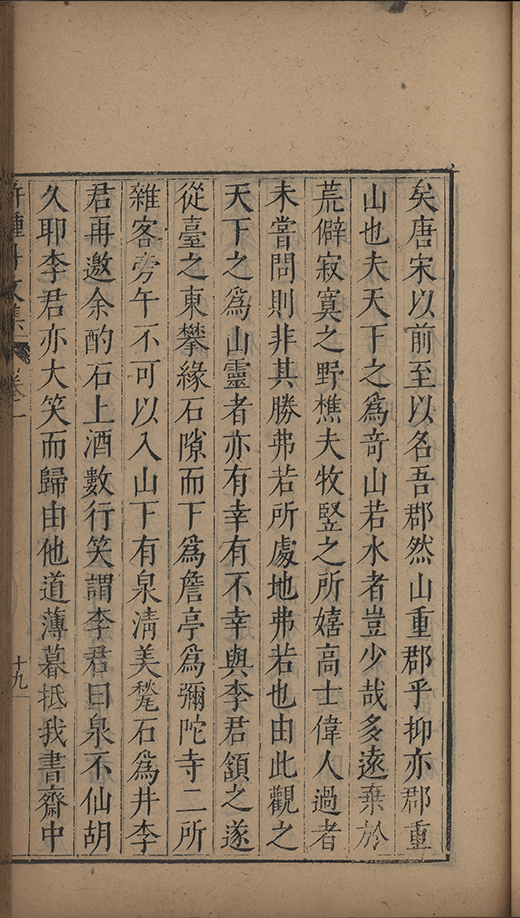 矣唐宋以前至以名吾郡然山重郡乎抑亦郡重
山也夫天下之為奇山若水者豈少哉多遠棄於
荒僻寂寞之野樵夫牧豎之所嬉高士偉人過者
未嘗問則非其勝弗若所處地弗若也由此觀之
天下之為山靈者亦有幸有不幸與李君頷之遂
從臺之東攀緣石隙而下為詹亭為彌陀寺二所
雜客旁午不可以入山下有泉淸美甃石為井李
君再邀余酌石上酒數行笑謂李君曰泉不仙胡
久耶李君亦大笑而歸由他道薄暮抵我書齋中
文集 卷二 十九